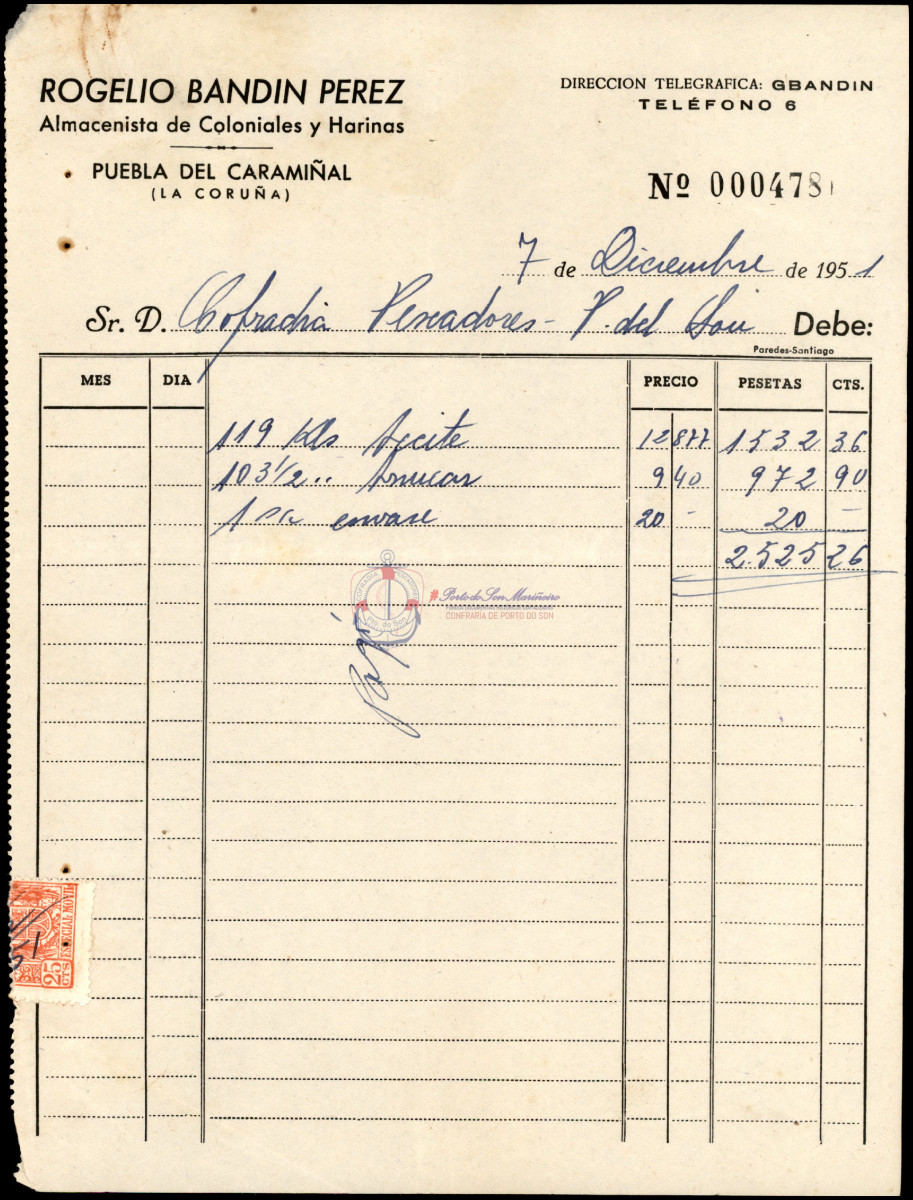 ROGELIO BANDIN PEREZ
Almacenista de Coloniales y Harinas
PUEBLA DEL CARAMIÑAL
(LA CORUÑA)
DIRECCION TELEGRAFICA: GBANDIN
TELÉFONO 6
Nº 000478
7 de Diciembre de 1951
Sr. D. Cofradia Pescadores - P. del Son Debe:
Paredes-Santiago
MES DIA PRECIO PESETAS CTS.
119 Kls Aceite 12 877 1532 36
103 1/2 " Azucar 9 40 972 90
1 envase 20 - 20 -
2.525 26
COFRADIA PESCADORES
Pto. do Son
#Porto do Son Mariñeiro
CONFRARIA DE PORTO DO SON
Pagé
51
ESPECIAL MOVIL
25 CTS